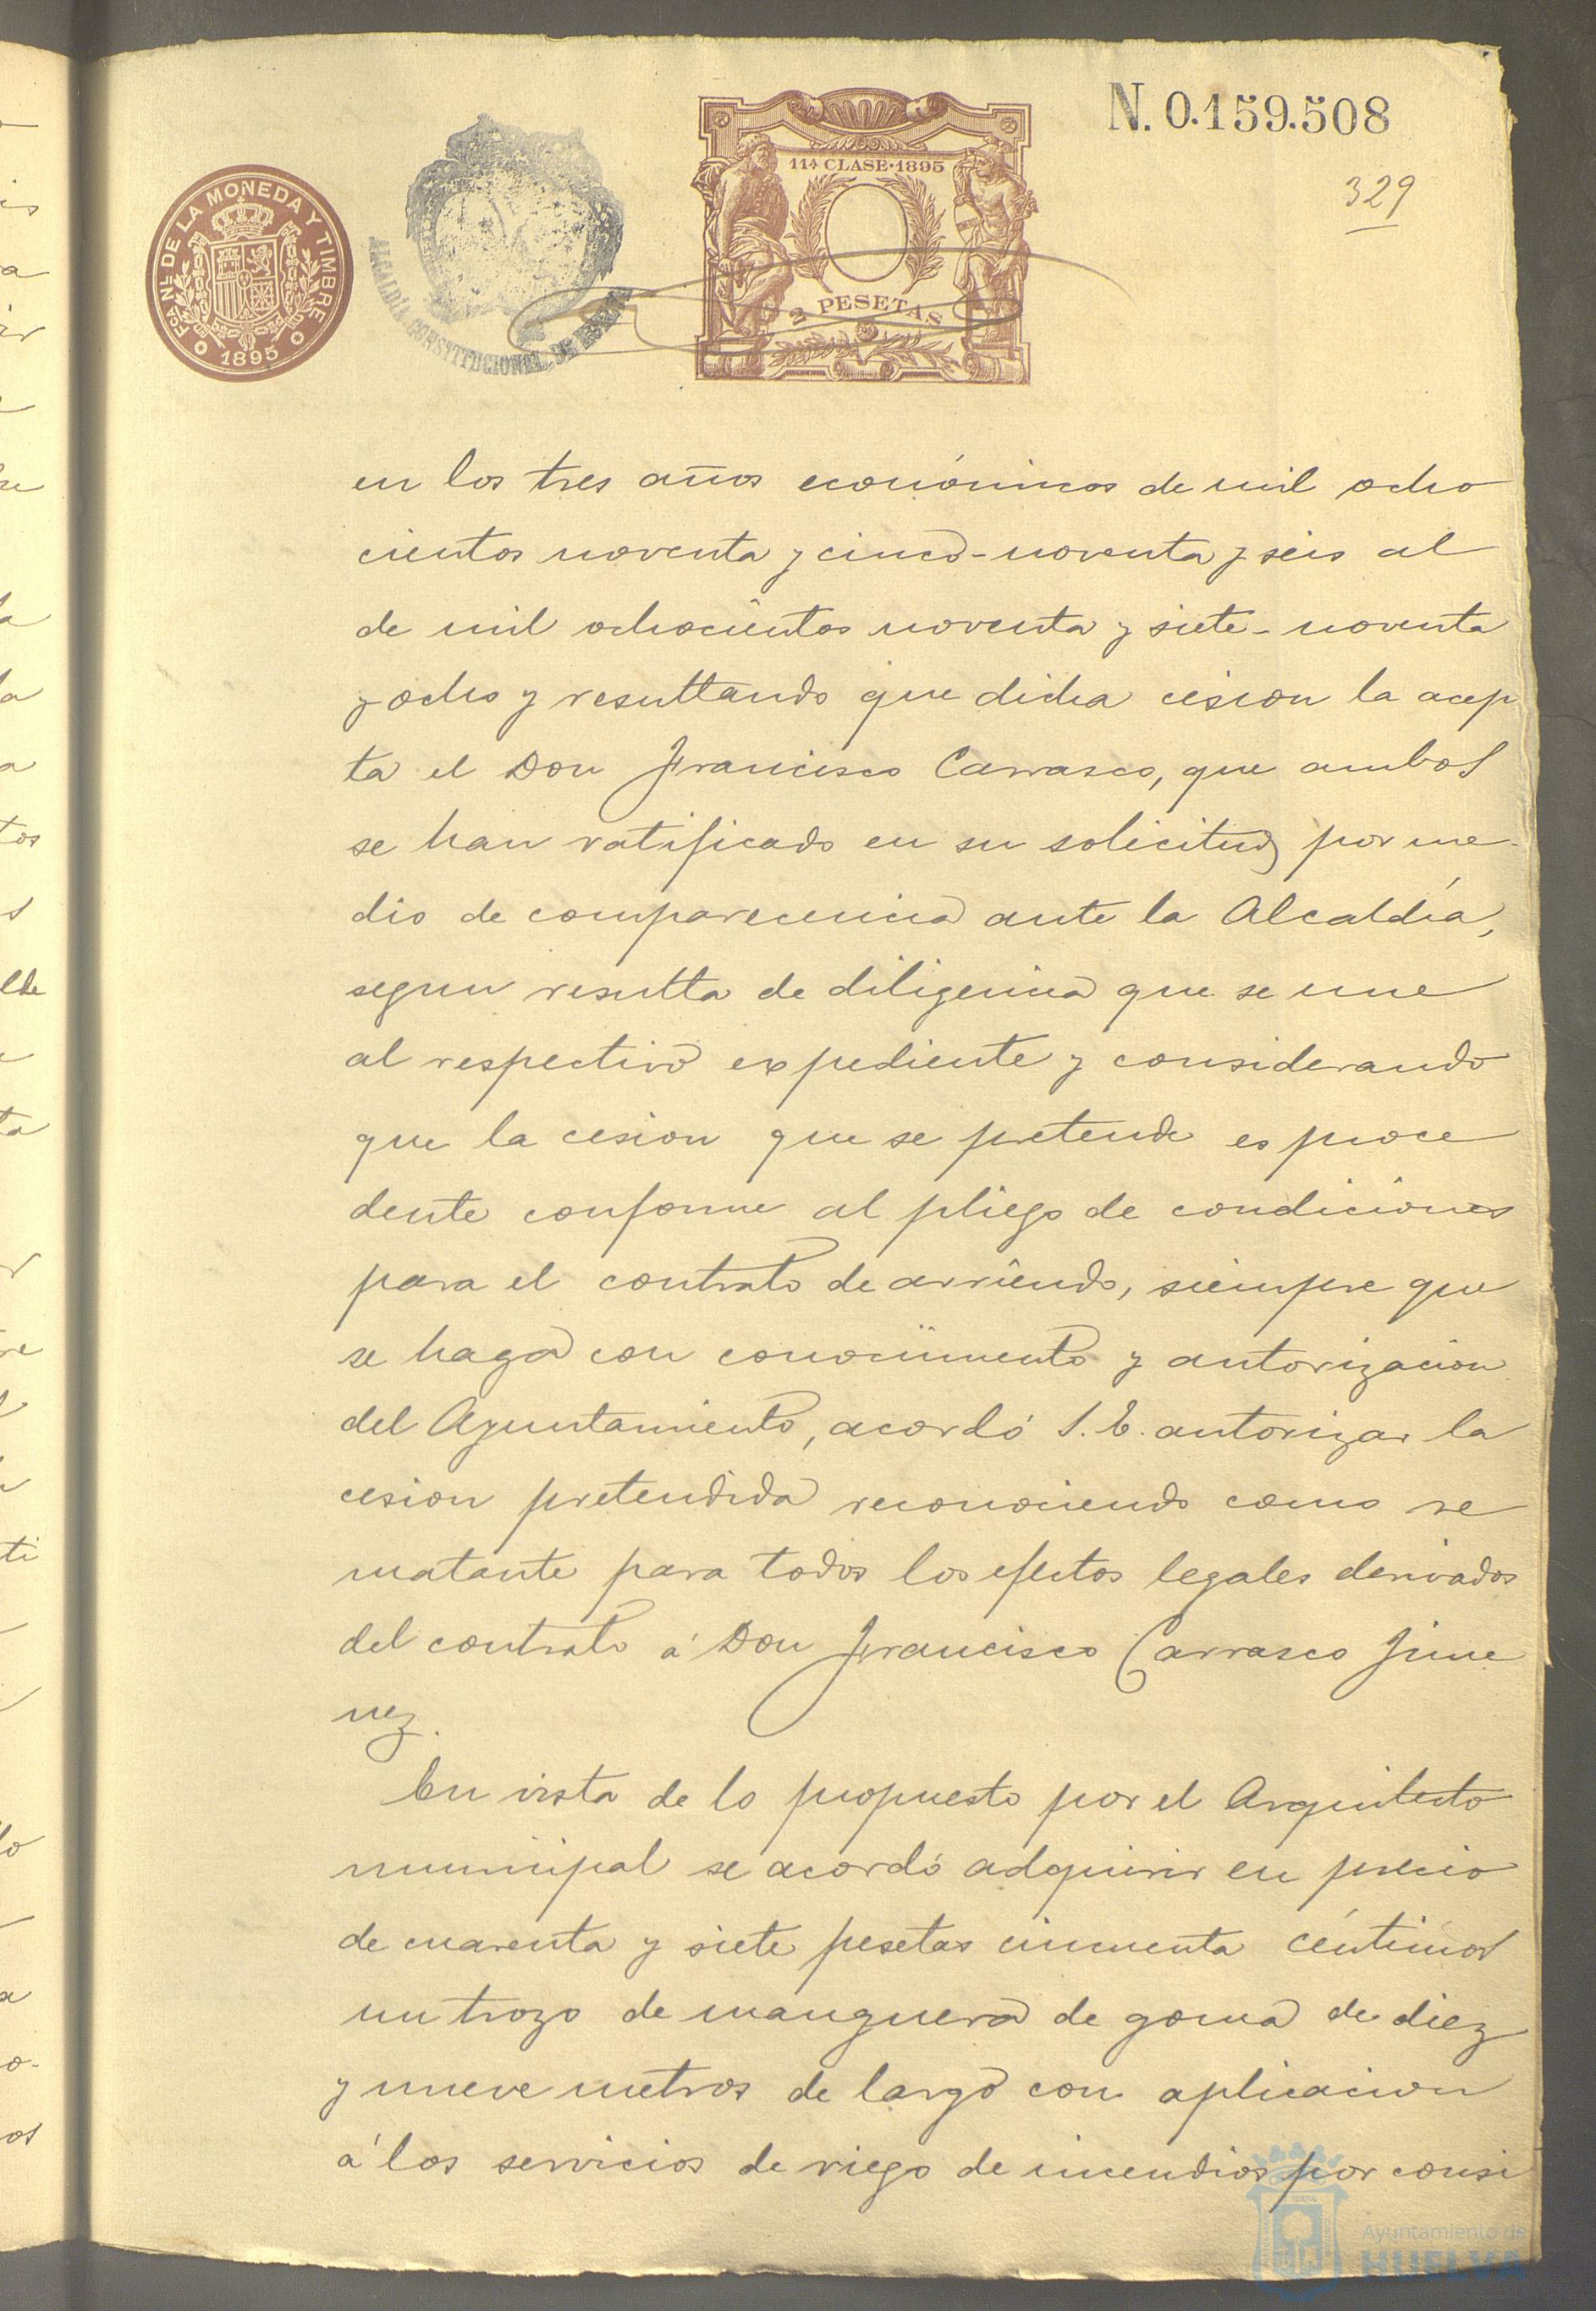 N. 0.159.508
329
FCA. NL. DE LA MONEDA Y TIMBRE
1895
ALCALDÍA CONSTITUCIONAL DE HUELVA
11ª CLASE·1895
2 PESETAS
en los tres años económicos de mil ocho
cientos noventa y cinco-noventa y seis al
de mil ochocientos noventa y siete-noventa
y ocho y resultando que dicha cesion la acep
ta el Don Francisco Carrasco, que ambos
se han ratificado en su solicitud por me-
dio de comparecencia ante la Alcaldía,
segun resulta de diligencia que se une
al respectivo expediente y considerando
que la cesion que se pretende es proce
dente conforme al pliego de condiciones
para el contrato de arriendo, siempre que
se haga con conocimiento y autorizacion
del Ayuntamiento, acordó S.E. autorizar la
cesion pretendida reconociendo como re
matante para todos los efectos legales derivados
del contrato á Don Francisco Carrasco Jime
nez.
En vista de lo propuesto por el Arquitecto
municipal se acordó adquirir en precio
de cuarenta y siete pesetas cincuenta céntimos
un trozo de manguera de goma de diez
y nueve metros de largo con aplicacion
á los servicios de riego de incendios por consi
Ayuntamiento de
HUELVA